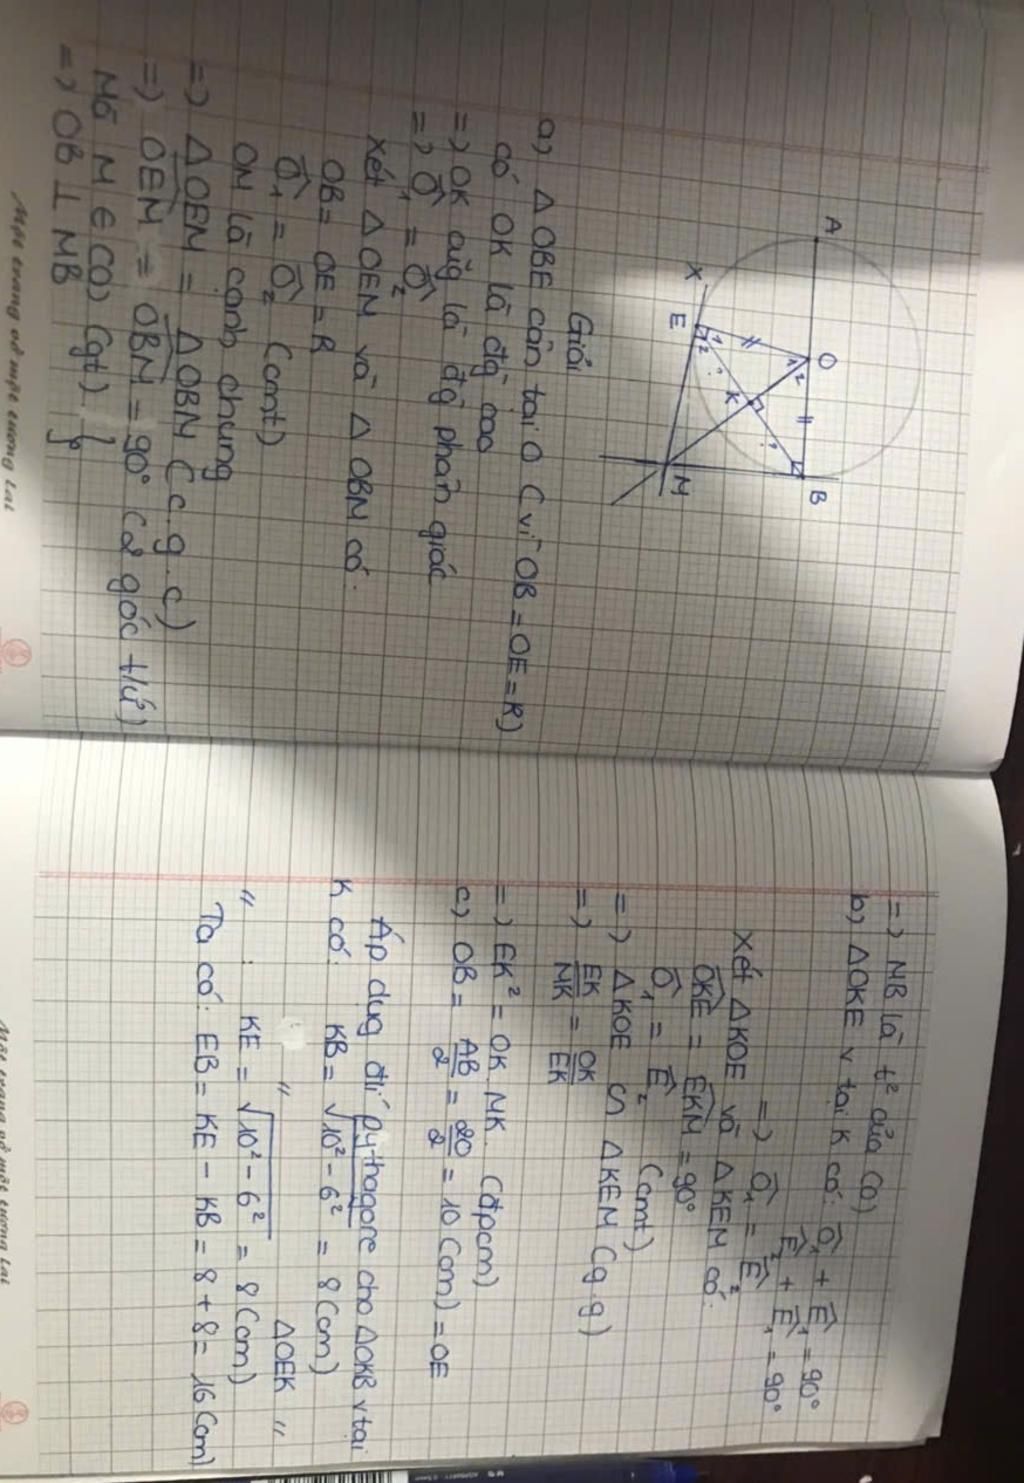 A
O
B
X
E
K
M
1
2
1
2
?
?
Giải
a) ΔOBE cân tại O (vì OB = OE = R)
có OK là đg cao
=) OK cũg là đg phân giác
=) Ô₁ = Ô₂
Xét ΔOEM và ΔOBM có:
OB = OE = R
Ô₁ = Ô₂ (cmt)
OM là cạnh chung
=) ΔOEM = ΔOBM (c.g.c)
=) OEM = OBM = 90° (2 góc t/ứ)
Mà M ∈ (O) (gt) }
=) OB ⊥ MB
Một trang vở một tương lai
=) MB là t² của (O)
b) ΔOKE v tại K có: Ô₁ + Ê₁ = 90°
Ê₂ + Ê₁ = 90°
=) Ô₁ = Ê₂
Xét ΔKOE và ΔKEM có:
OKE = EKM = 90°
Ô₁ = Ê₂ (cmt)
=) ΔKOE ∽ ΔKEM (g.g)
=) EK/MK = OK/EK
=) EK² = OK.MK. (đpcm)
c) OB = AB/2 = 20/2 = 10 (cm) = OE
Áp dụg đlí pythagore cho ΔOKB v tại
K có: KB = √10² - 6² = 8 (cm)
" " ΔOEK "
" : KE = √10² - 6² = 8 (cm)
Ta có: EB = KE - KB = 8 + 8 = 16 (cm)
Một trang vở một tương lai